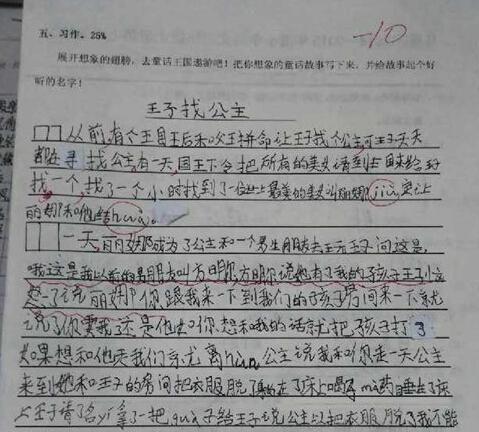 五、习作。25%
-10
展开想象的翅膀，去童话王国遨游吧！把你想象的童话故事写下来，并给故事起个好
听的名字！
王子找公主
从前,有个王国王后和父王拼命让王子找个公主可王子天天
都在寻找公主,有一天国王下令把所有的美女请到
找一个,找了一个小时找到了一位世上最美的美女叫丽娜 让
丽娜和他结hun。
一天,丽娜成为了公主和一个男生朋友去玩王子问这是,
哦这是我以前的男朋友叫方明 方明说她有了我的孩子王子
起了说丽娜你跟我来一下到我们的孩子房间来一下王子
说了你要我还是他如你想和我的话就把孩子打了
如果想和他 我们就离hun,公主说我和你 一天公主
来到她和王子的房间把衣服脱了 在了床上喝了 药睡在了床
上王子请了 拿了一把 子给王子说公主 把衣服脱了我不能